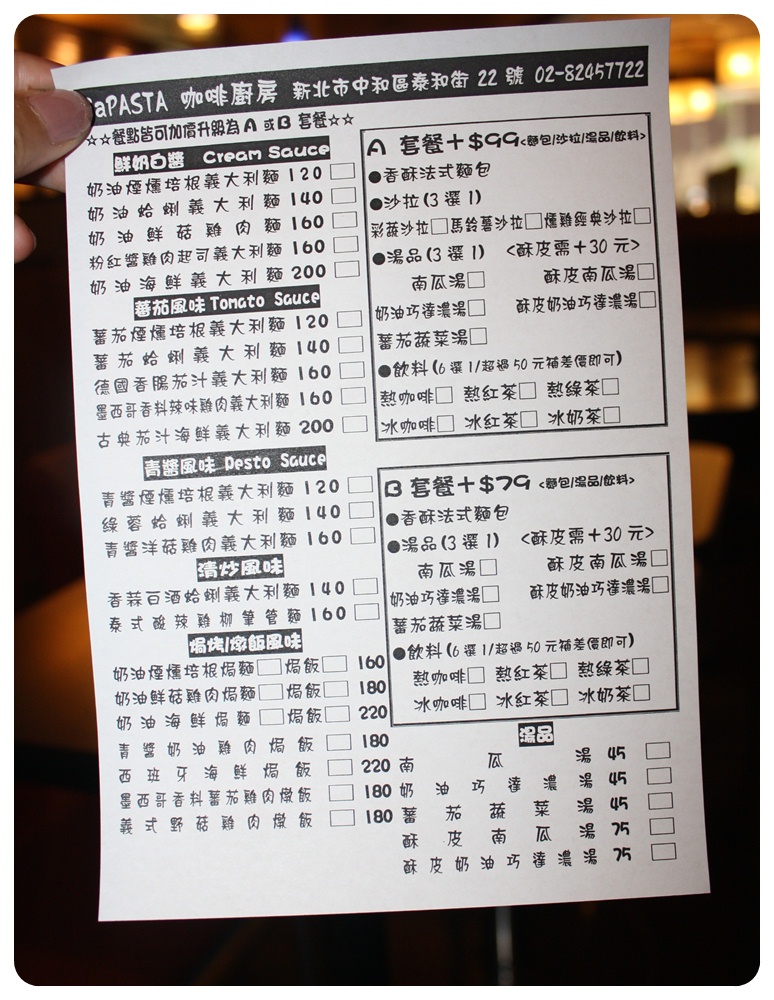 aPASTA 咖啡廚房 新北市中和區泰和街 22 號 02-82457722
☆☆餐點皆可加價升級為 A 或B 套餐☆☆
鮮奶白醬 Cream Sauce
奶油煙燻培根義大利麵 120
奶油蛤蜊義大利麵 140
奶油鮮菇雞肉麵 160
粉紅醬雞肉起司義大利麵 160
奶油海鮮義大利麵 200
蕃茄風味 Tomato Sauce
蕃茄煙燻培根義大利麵 120
蕃茄蛤蜊義大利麵 140
德國香腸茄汁義大利麵 160
墨西哥香料辣味雞肉義大利麵 160
古典茄汁海鮮義大利麵 200
青醬風味 Pesto Sauce
青醬煙燻培根義大利麵 120
綠蓉蛤蜊義大利麵 140
青醬洋菇雞肉義大利麵 160
清炒風味
香蒜白酒蛤蜊義大利麵 140
泰式酸辣雞柳筆管麵 160
焗烤/燉飯風味
奶油煙燻培根焗麵 焗飯 160
奶油鮮菇雞肉焗麵 焗飯 180
奶油海鮮焗麵 焗飯 220
青醬奶油雞肉焗飯 180
西班牙海鮮焗飯 220
墨西哥香料蕃茄雞肉燉飯 180
義式野菇雞肉燉飯 180
A 套餐+$99<麵包/沙拉/湯品/飲料>
●香酥法式麵包
●沙拉(3 選 1)
彩蔬沙拉 馬鈴薯沙拉 燻雞經典沙拉
●湯品(3 選 1) <酥皮需+30 元>
南瓜湯 酥皮南瓜湯
奶油巧達濃湯 酥皮奶油巧達濃湯
蕃茄蔬菜湯
●飲料(6 選 1/超過 50 元補差價即可)
熱咖啡 熱紅茶 熱綠茶
冰咖啡 冰紅茶 冰奶茶
B 套餐+$79 <麵包/湯品/飲料>
●香酥法式麵包
●湯品(3 選 1) <酥皮需+30 元>
南瓜湯 酥皮南瓜湯
奶油巧達濃湯 酥皮奶油巧達濃湯
蕃茄蔬菜湯
●飲料(6 選 1/超過 50 元補差價即可)
熱咖啡 熱紅茶 熱綠茶
冰咖啡 冰紅茶 冰奶茶
湯品
南瓜湯 45
奶油巧達濃湯 45
蕃茄蔬菜湯 45
酥皮南瓜湯 75
酥皮奶油巧達濃湯 75